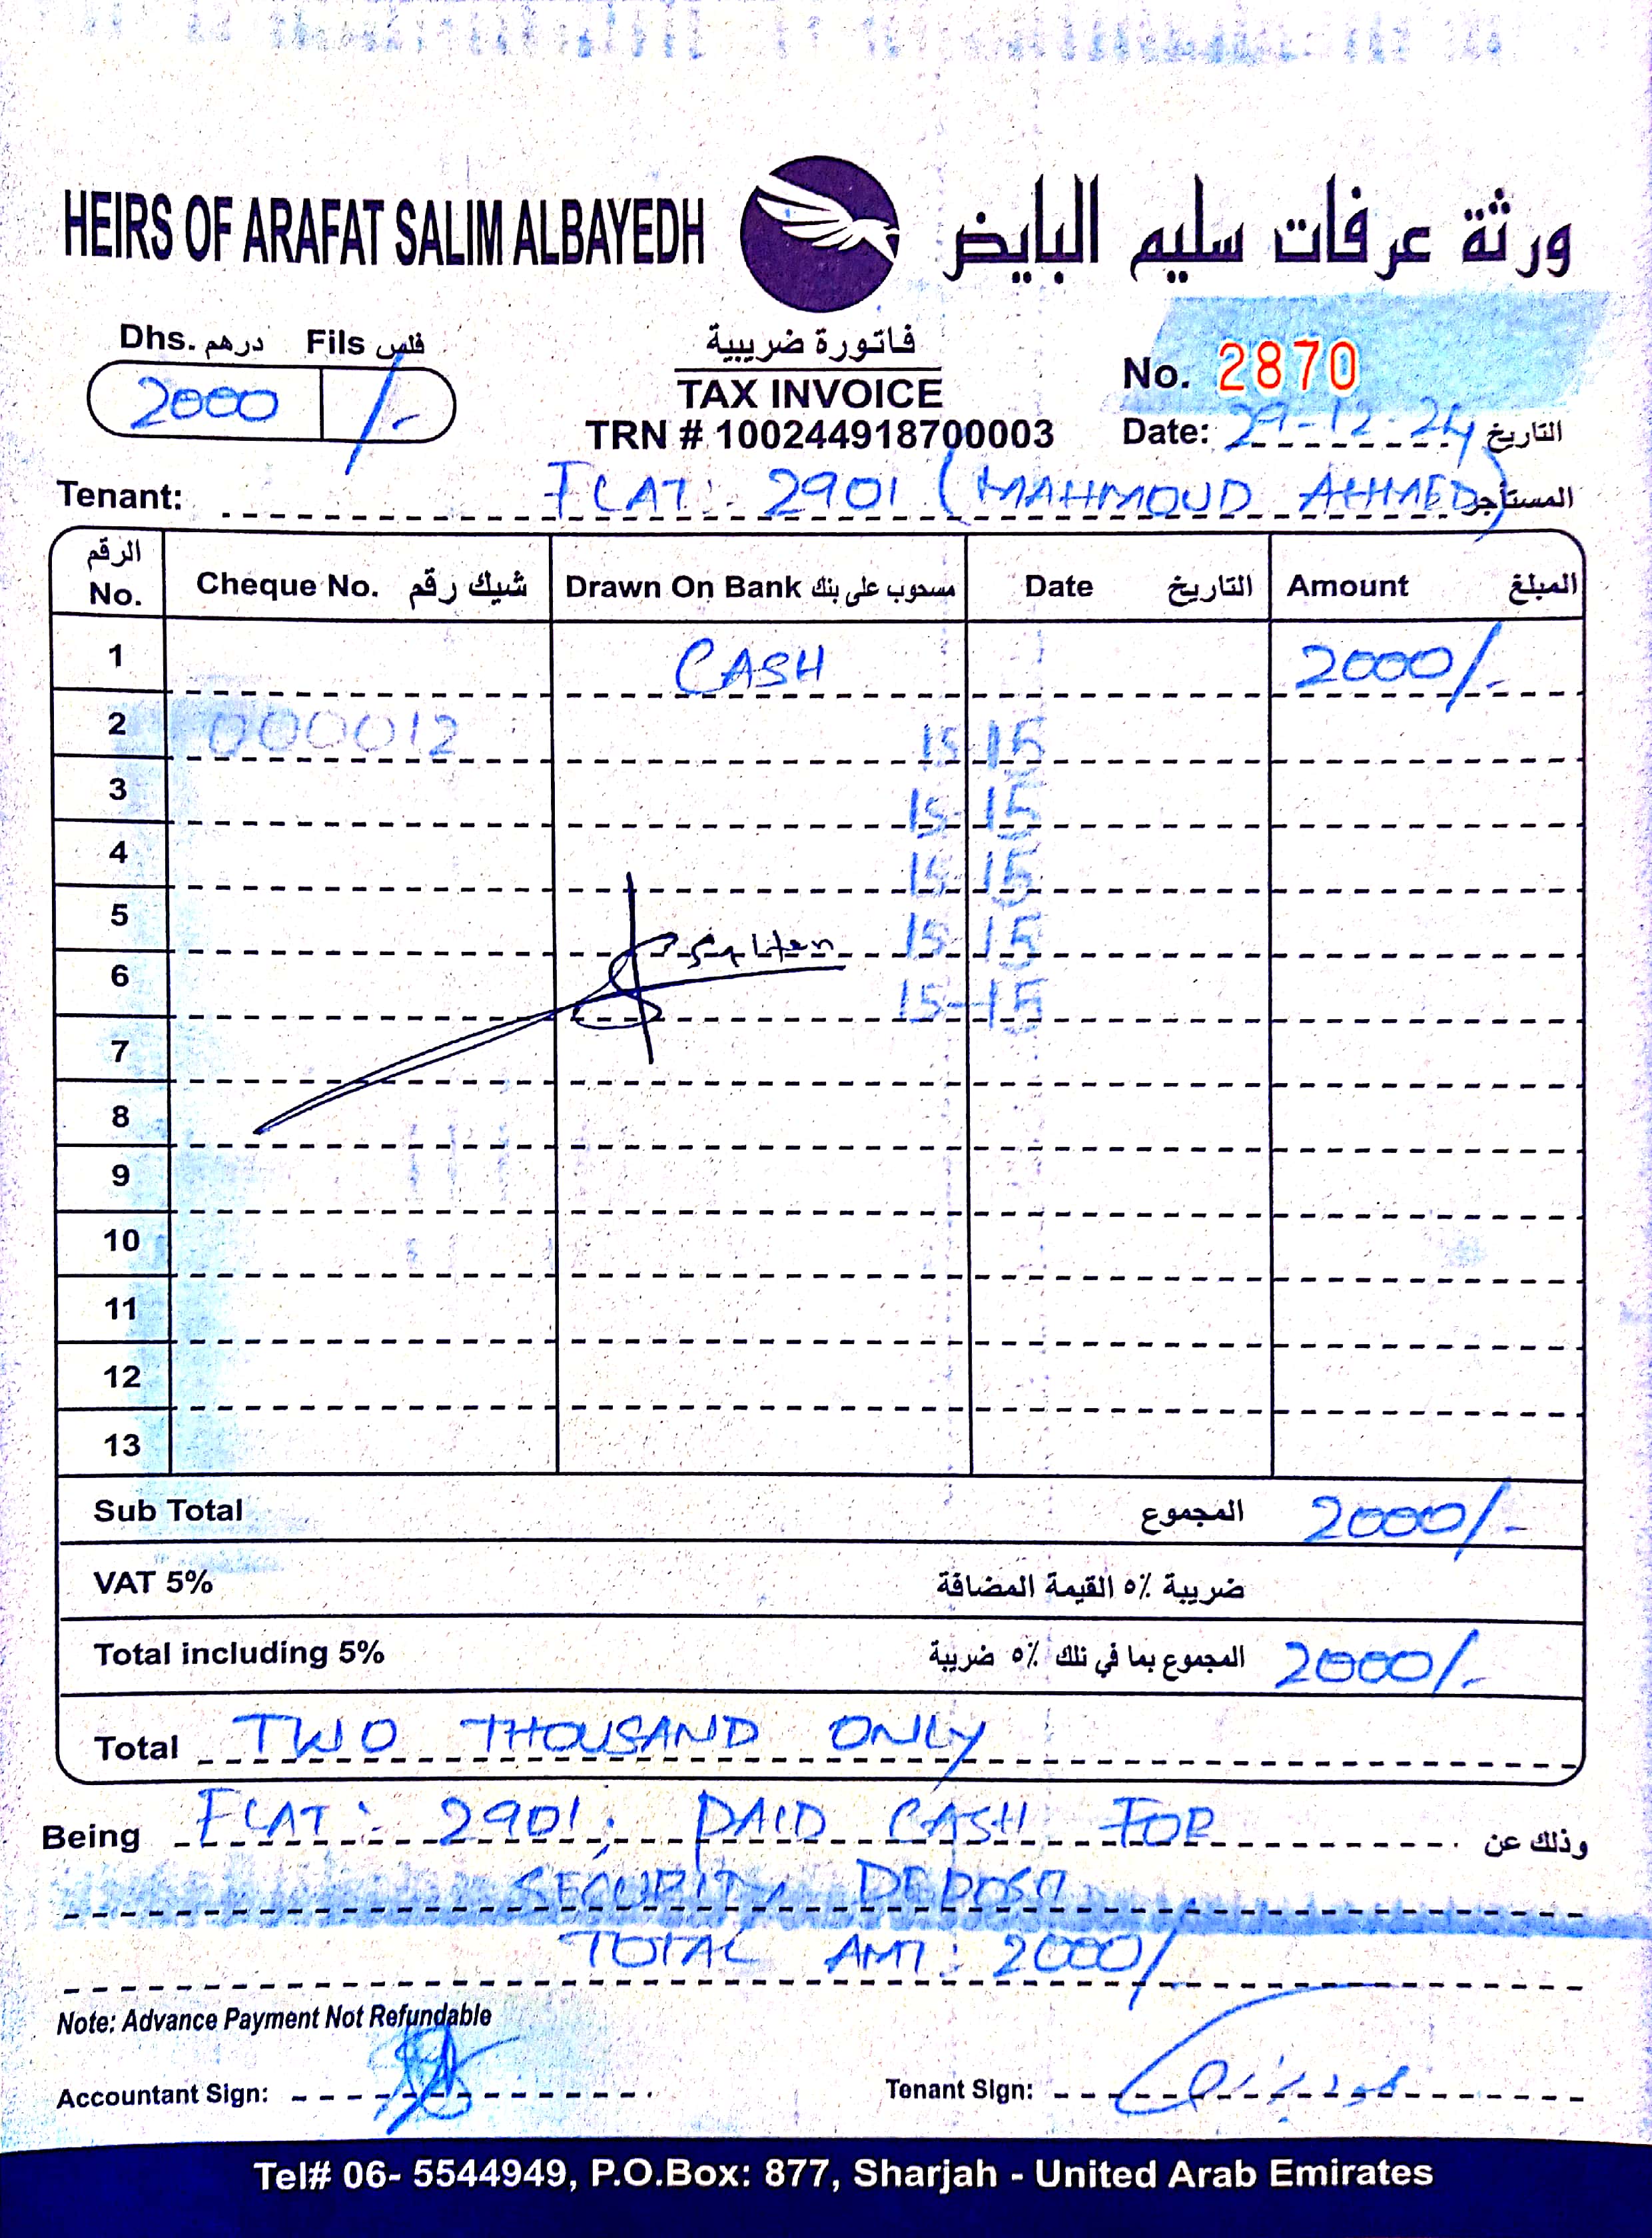 HEIRS OF ARAFAT SALIM ALBAYEDH ورثة عرفات سليم البايض
Dhs. درهم Fils فلس
2000 /-
فاتورة ضريبية
TAX INVOICE
TRN # 100244918700003
No. 2870
Date: 29-12-24 التاريخ
Tenant: FLAT: 2901 (MAHMOUD AHMED) المستأجر
الرقم No. Cheque No. شيك رقم Drawn On Bank مسحوب على بنك Date التاريخ Amount المبلغ
1 CASH 2000/-
2 000012 15 15
3 15-15
4 15-15
5 15-15
6 15-15
7
8
9
10
11
12
13
Sub Total المجموع 2000/-
VAT 5% ضريبة ٥٪ القيمة المضافة
Total including 5% المجموع بما في ذلك ٥٪ ضريبة 2000/-
Total TWO THOUSAND ONLY
Being FLAT: 2901, PAID CASH FOR وذلك عن
SECURITY DEPOSIT
TOTAL AMT: 2000/
Note: Advance Payment Not Refundable
Accountant Sign: Tenant Sign:
Tel# 06- 5544949, P.O.Box: 877, Sharjah - United Arab Emirates